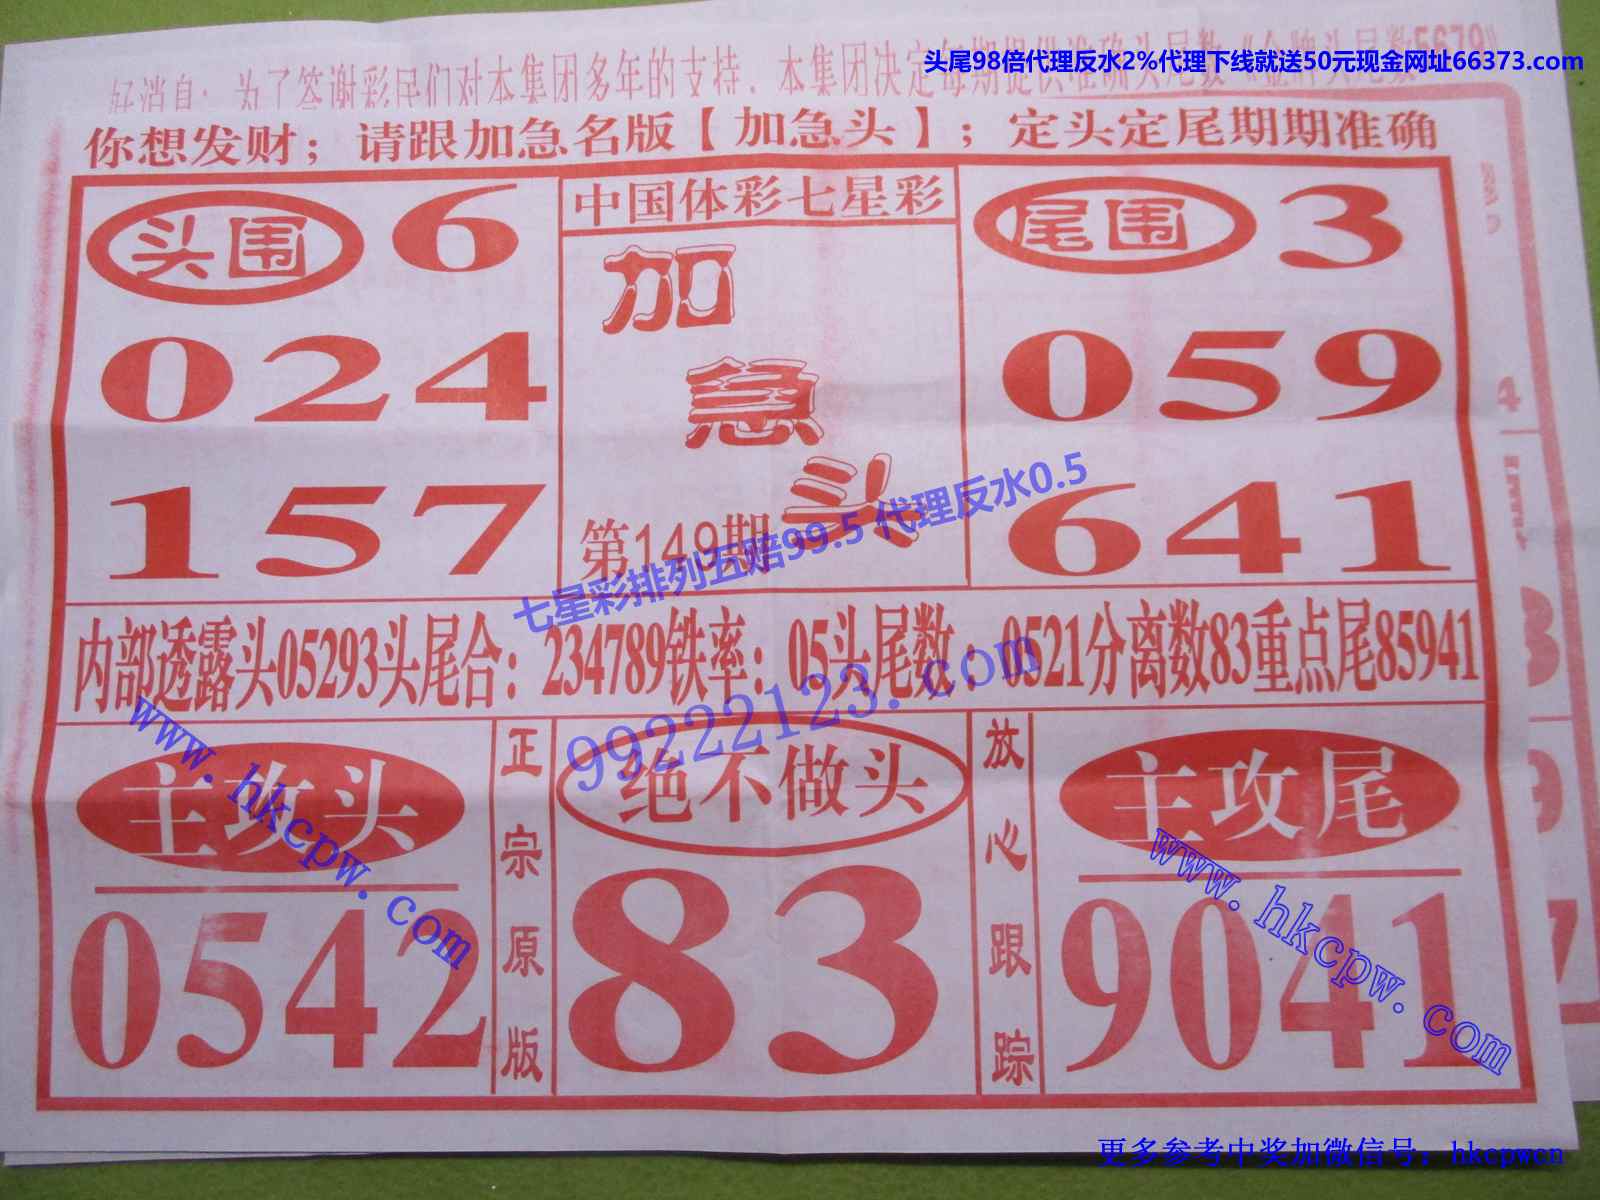 头尾98倍代理反水2%代理下线就送50元现金网址66373.com
好消息：为了答谢彩民们对本集团多年的支持，本集团决定每期提供准确头尾数《金牌头尾数5679》
你想发财；请跟加急名版【加急头】；定头定尾期期准确
头围 6
024
157
中国体彩七星彩
加急头
第149期
尾围 3
059
641
七星彩排列五赔99.5 代理反水0.5
内部透露头05293头尾合：234789铁率：05头尾数：0521分离数83重点尾85941
99222123.com
主攻头
0542
www.hkcpw.com
正宗原版
绝不做头
83
放心跟踪
主攻尾
9041
www.hkcpw.com
更多参考中奖加微信号：hkcpwcn